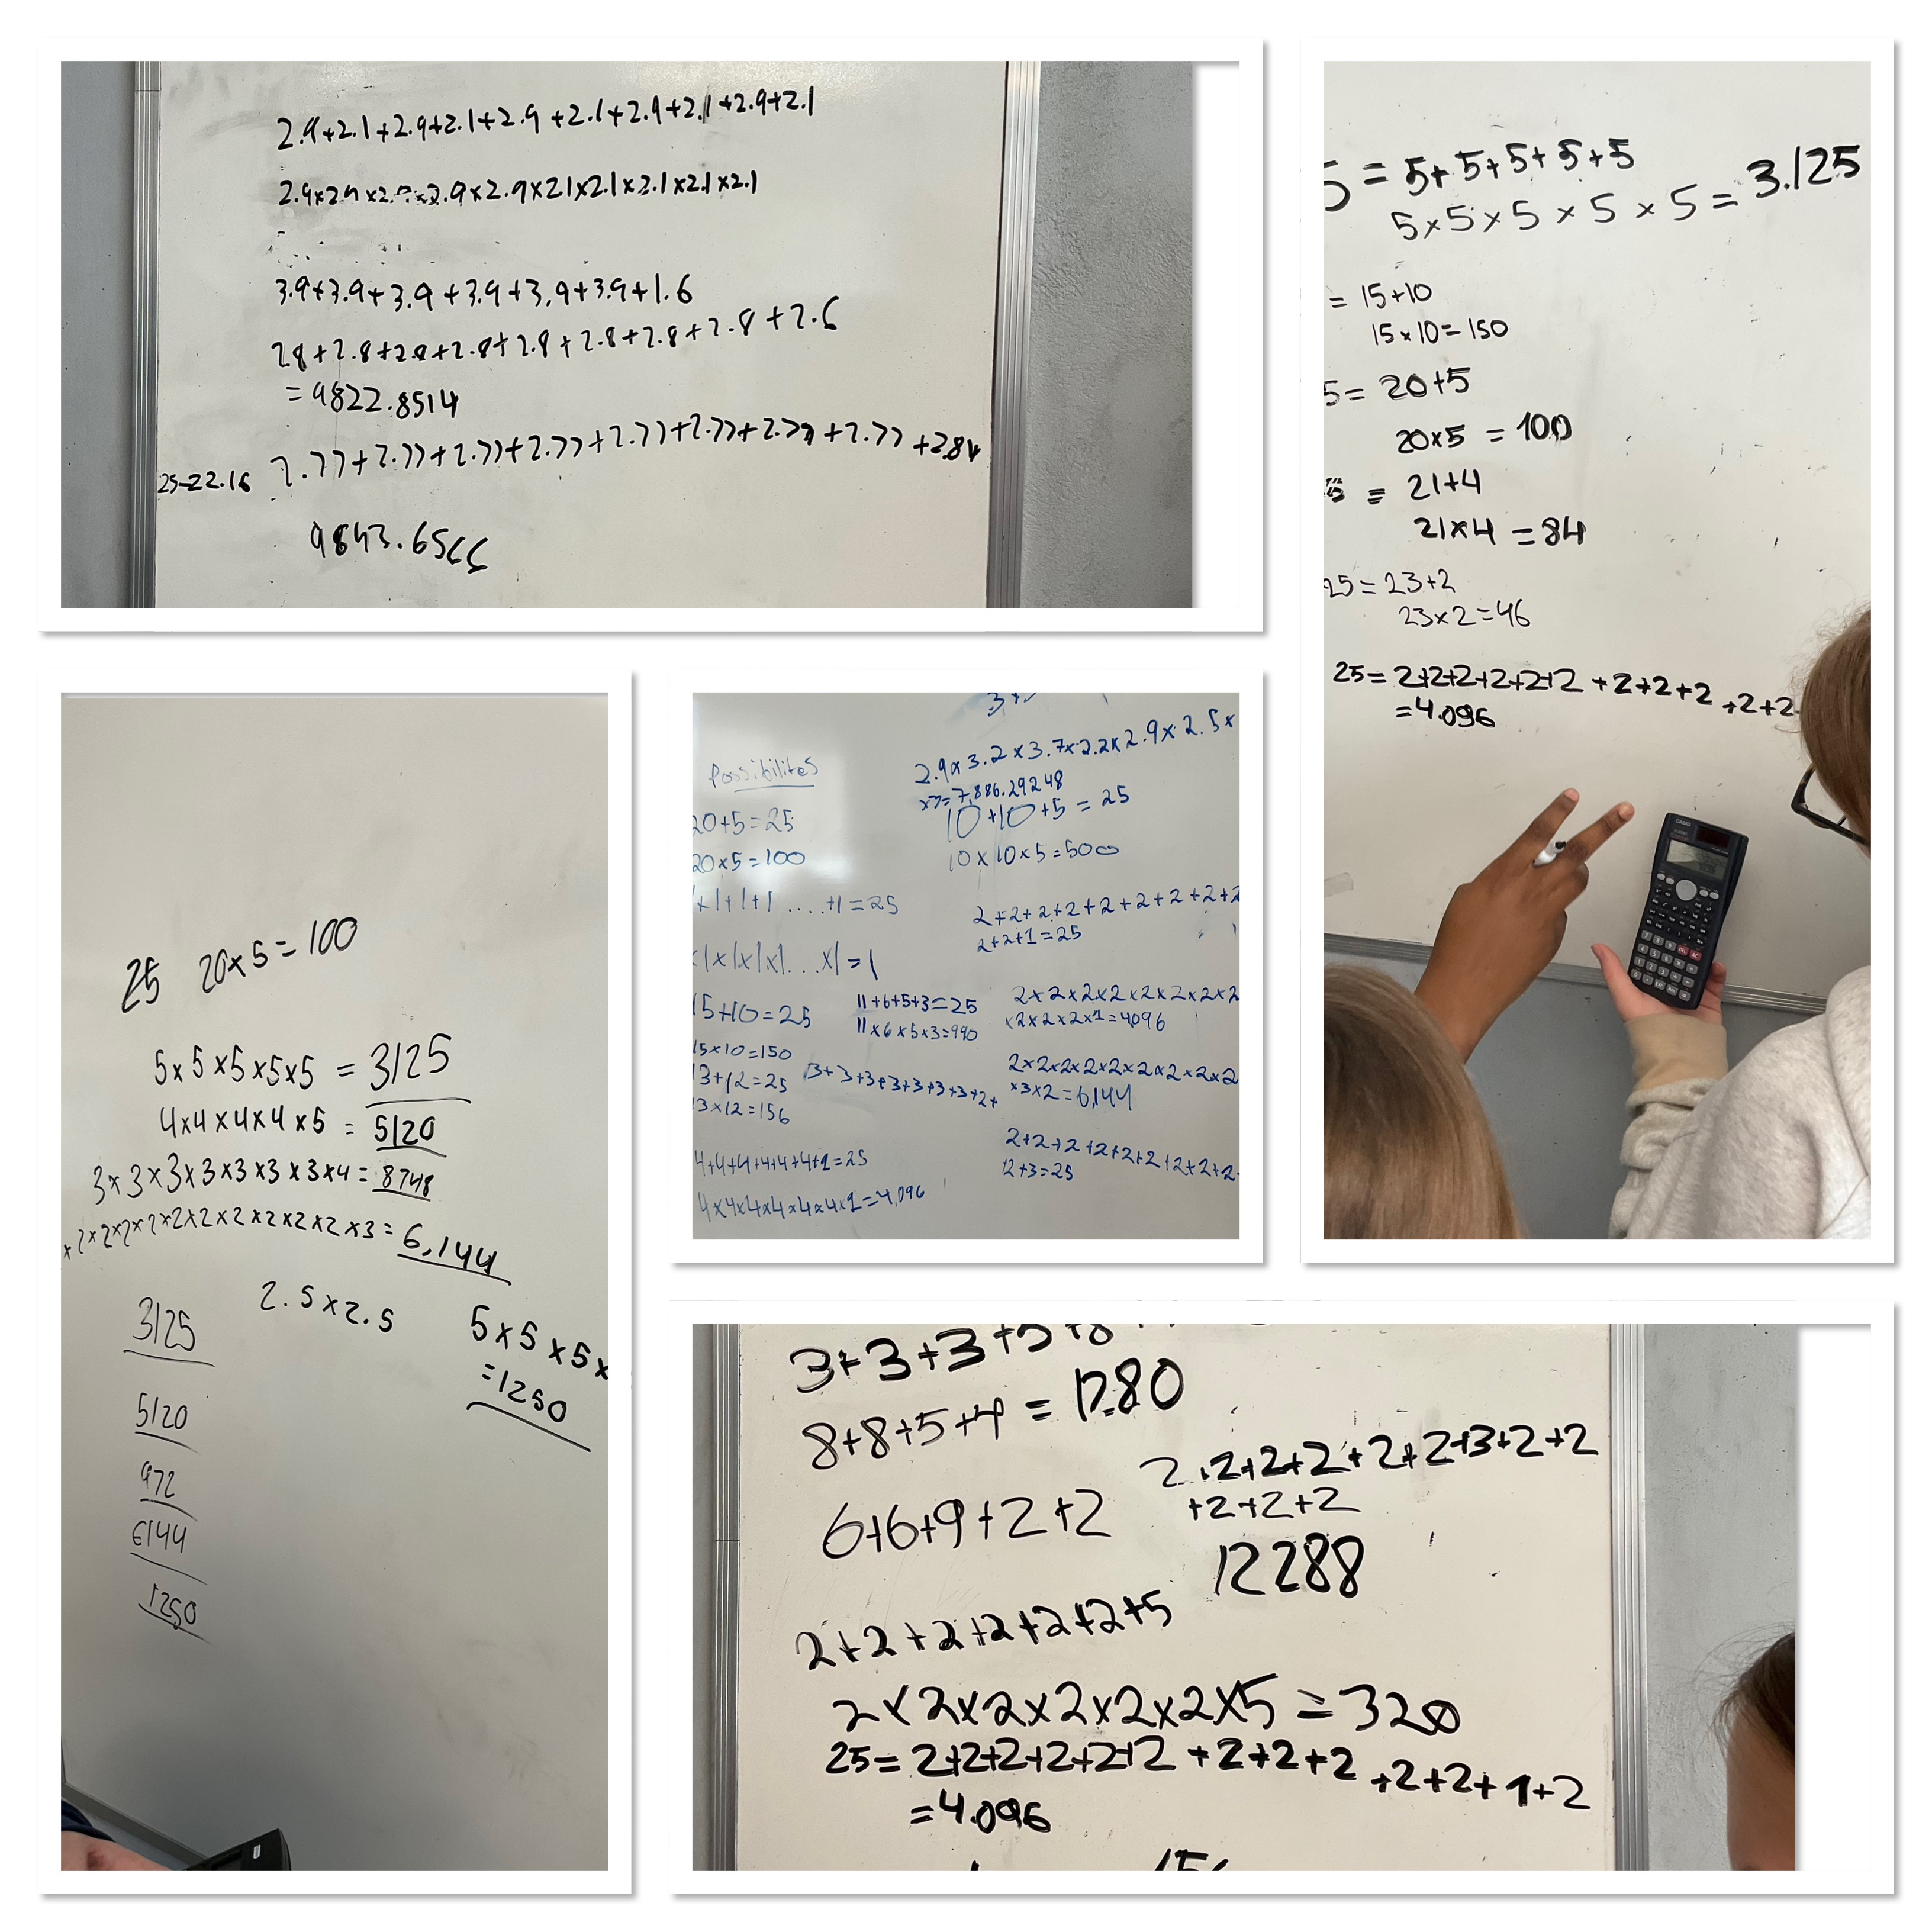 2.9+2.1+2.9+2.1+2.9+2.1+2.9+2.1+2.9+2.1
2.9×2.9×2.9×2.9×2.9×2.1×2.1×2.1×2.1×2.1
3.9+3.9+3.9+3.9+3.9+3.9+1.6
2.8+2.8+2.8+2.8+2.8+2.8+2.8+2.8+2.6
=9822.8514
25-22.16 2.77+2.77+2.77+2.77+2.77+2.77+2.77+2.77+2.84
9843.6566
5=5+5+5+5+5
5×5×5×5×5=3.125
=15+10
15×10=150
5=20+5
20×5=100
=21+4
21×4=84
25=23+2
23×2=46
25=2+2+2+2+2+2+2+2+2+2+2
=4.096
25 20×5=100
5×5×5×5×5=3125
4×4×4×4×5=5120
3×3×3×3×3×3×3×4=8748
×2×2×2×2×2×2×2×2×2×2×3=6,144
3125
2.5×2.5
5×5×5×
=1250
5120
972
6144
1250
Possibilites
20+5=25
20×5=100
+1+1+1....+1=25
×1×1×1×1...×1=1
15+10=25
15×10=150
13+12=25
13×12=156
4+4+4+4+4+4+1=25
4×4×4×4×4×4×1=4,096
11+6+5+3=25
11×6×5×3=990
3+3+3+3+3+3+3+2+
2.9×3.2×3.7×2.2×2.9×2.5×
×3=7,886.29248
10+10+5=25
10×10×5=500
2+2+2+2+2+2+2+2+2
2+2+1=25
2×2×2×2×2×2×2×2
×2×2×2×1=4096
2×2×2×2×2×2×2×2×2
×3×2=6,144
2+2+2+2+2+2+2+2+2
2+3=25
3+3+3+5+8
8+8+5+4=1280
6+6+9+2+2
2+2+2+2+2+2+3+2+2
+2+2+2
12288
2+2+2+2+2+2+5
2×2×2×2×2×2×5=320
25=2+2+2+2+2+2+2+2+2+2+2+1+2
=4.096